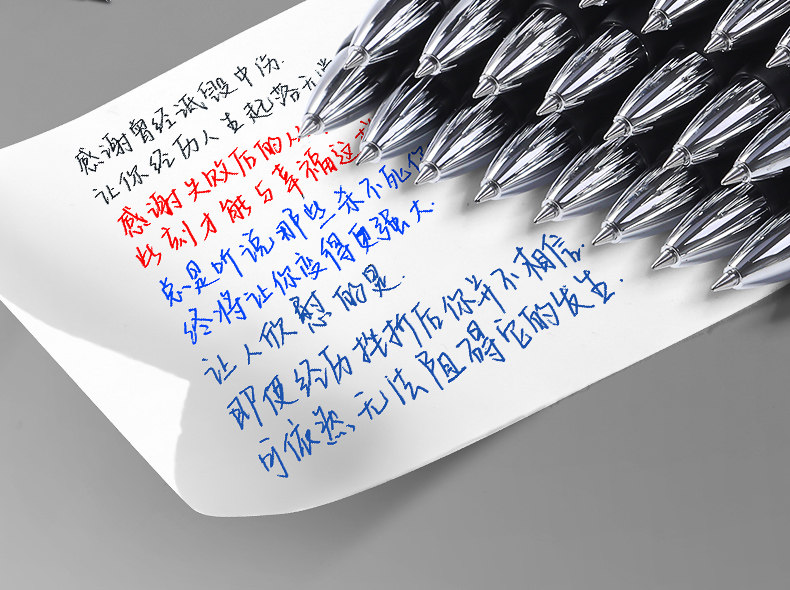 感谢曾经诋毁中伤.
让你经历人生起落无常
感谢失败后的从
此刻才能与幸福这
总是听说那些杀不死你
终将让你变得更强大.
让人欣慰的是.
即便经历挫折后你并不相信.
可依然无法阻碍它的发生.